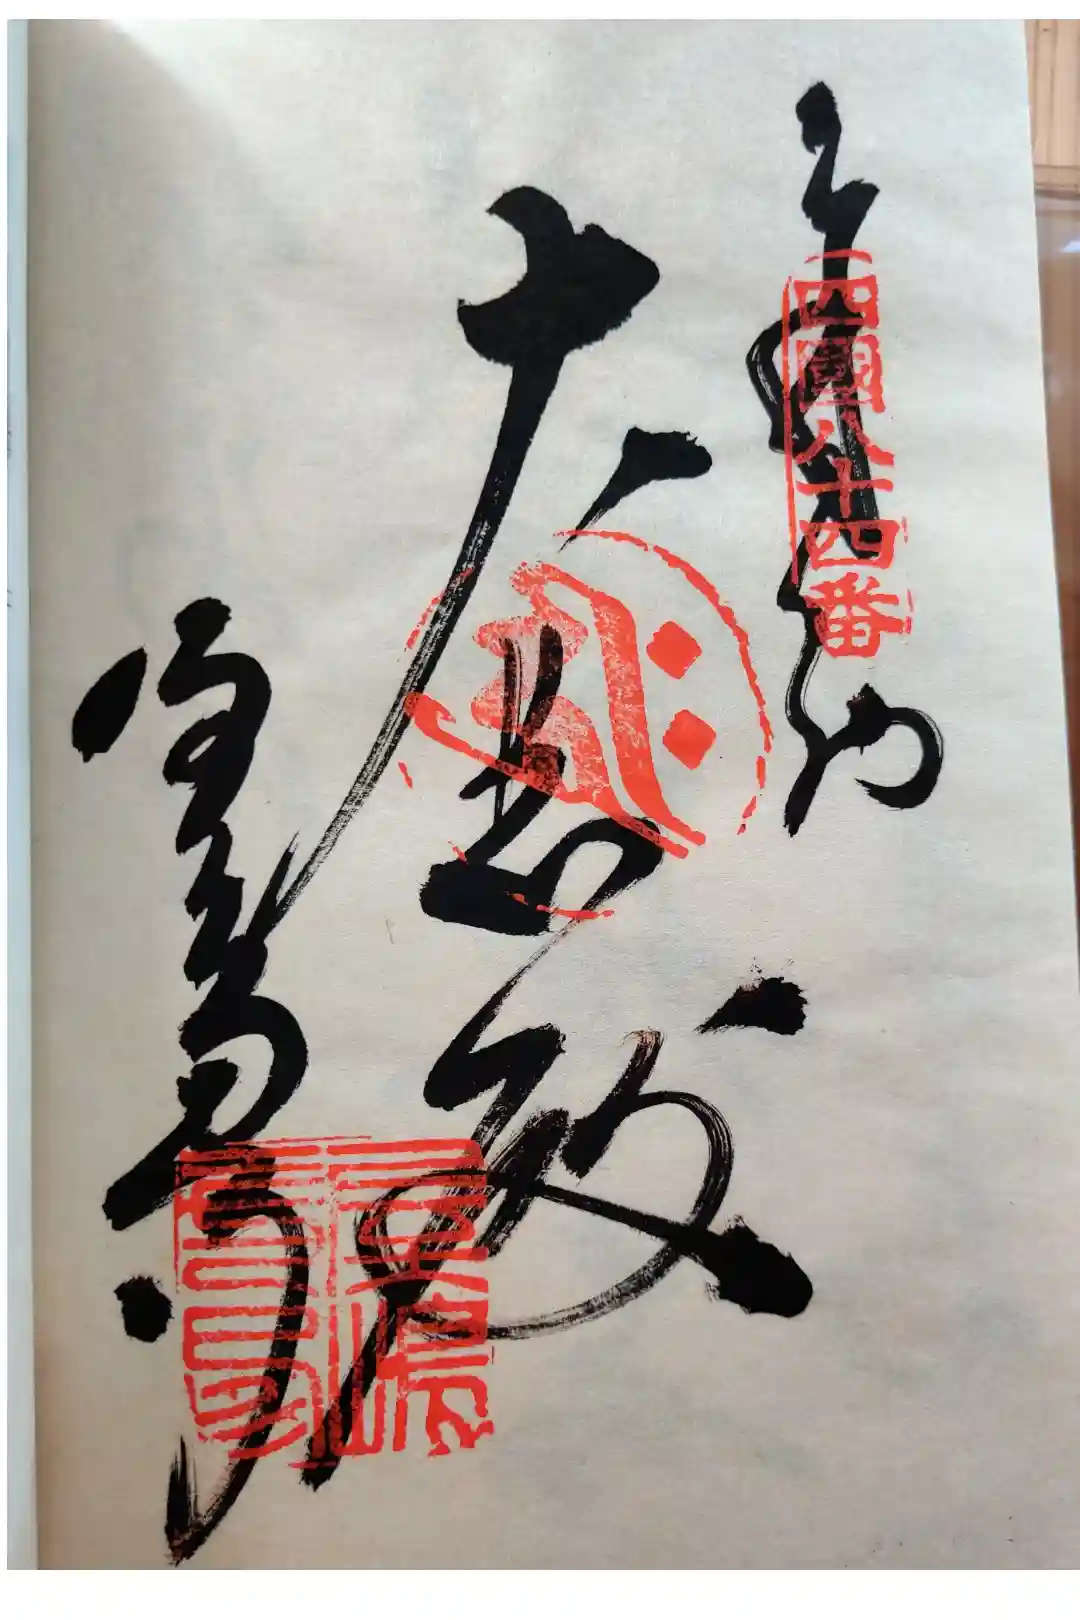 奉納
四國八十四番
大悲殿
屋島寺